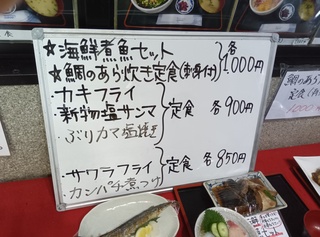 ☆海鮮煮魚セット 各
☆鯛のあら炊き定食(刺身付) 1,000円
カキフライ
新物塩サンマ 定食 各900円
ぶりカマ塩焼き
サワラフライ 定食 各850円
カンパチ煮つけ
鯛のあら
定食